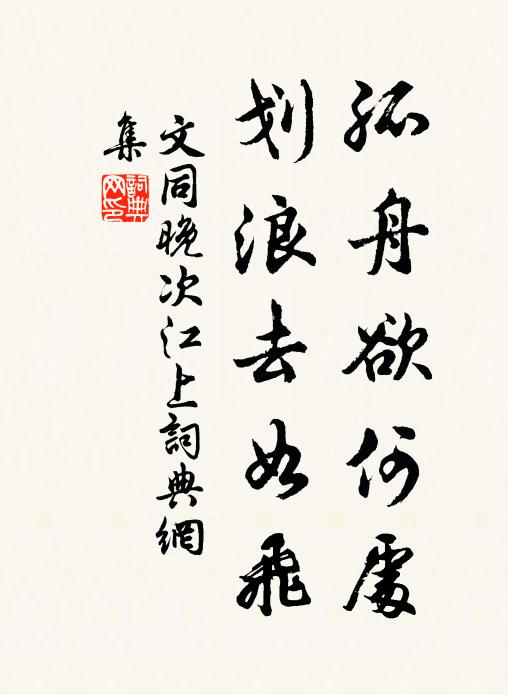 孤舟欲何處
划浪去如飛
文同晚次江上詞典網
集
詞典
网印